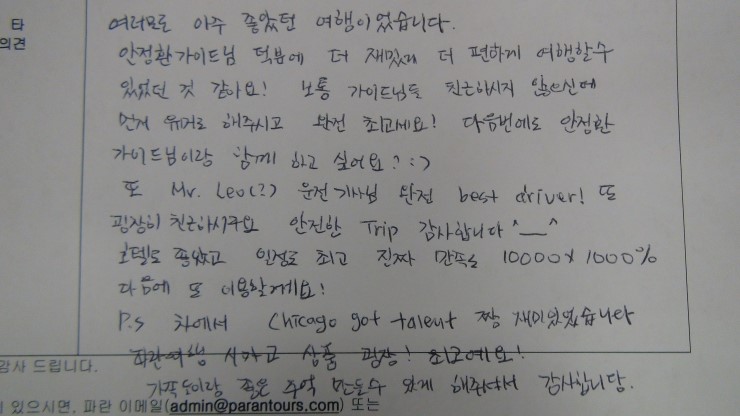 타
의견
여러모로 아주 좋았던 여행이었습니다.
안정환가이드님 덕분에 더 재밌게 더 편하게 여행할수
있었던 것 같아요! 보통 가이드님들 친근하시지 않으신데
먼저 유머로 해주시고 완전 최고세요! 다음번에도 안정환
가이드님이랑 함께 하고 싶어요? :)
또 Mr. Leo(?) 운전기사님 완전 best driver! 또
굉장히 친근하시구요 안전한 Trip 감사합니다 ^__^
호텔도 좋았고 일정도 최고 진짜 만족도 10000 x 1000%
다음에 또 이용할게요!
P.s 차에서 Chicago got talent 짱 재미있었습니다
파란여행 시카고 상품 굉장! 최고예요!
감사 드립니다.
가족들이랑 좋은 추억 만들수 있게 해주셔서 감사합니당.
이 있으시면, 파란 이메일(admin@parantours.com) 또는